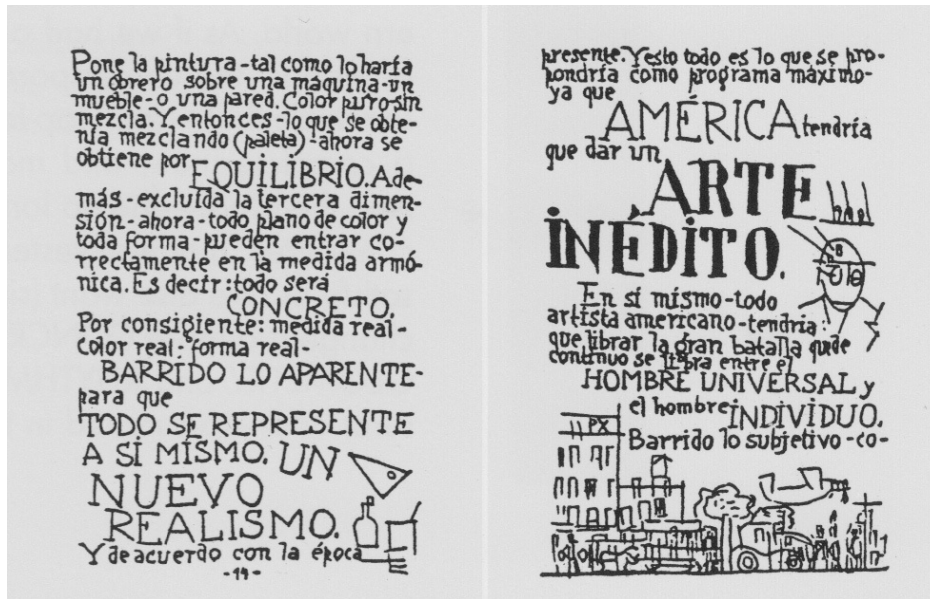 Pone la pintura-tal como lo haría
un obrero sobre una máquina-un
mueble-o una pared. Color puro-sin
mezcla. Y entonces-lo que se obte-
nía mezclando (paleta)-ahora se
obtiene por
EQUILIBRIO. Ade-
más-excluída la tercera dimen-
sión-ahora-todo plano de color y
toda forma-pueden entrar co-
rrectamente en la medida armó-
nica. Es decir: todo será
CONCRETO.
Por consigiente: medida real-
color real-forma real-
BARRIDO LO APARENTE-
para que
TODO SE REPRESENTE
A SÍ MÍSMO. UN
NUEVO
REALISMO.
Y de acuerdo con la época
-14-
presente. Y esto todo es lo que se pro-
pondría como programa máximo-
ya que
AMÉRICA tendría
que dar un
ARTE
INÉDITO.
En sí mismo-todo
artista americano-tendría
que librar la gran batalla que de
continuo se libra entre el
HOMBRE UNIVERSAL y
el hombre INDIVIDUO.
Barrido lo subjetivo-co-
PX